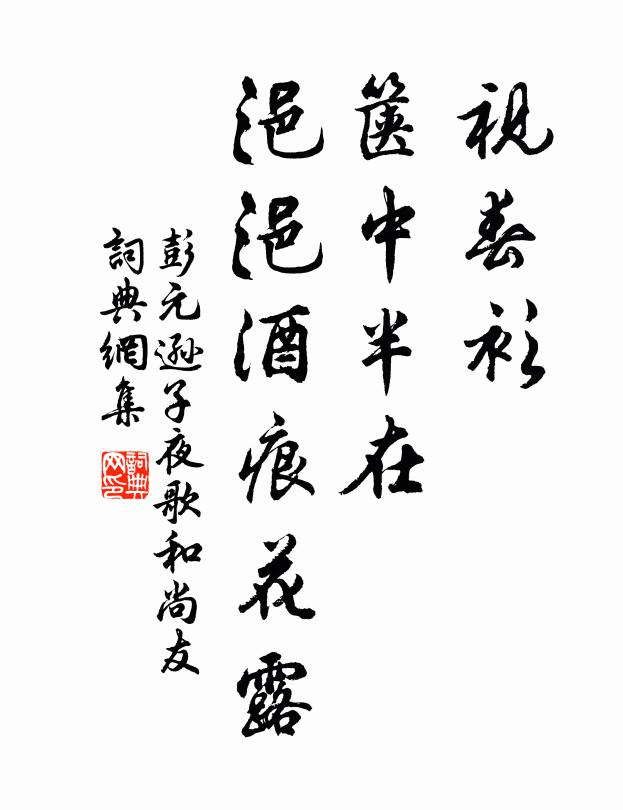 視春衫
篋中半在
浥浥酒痕花露
彭元遜子夜歌和尚友
詞典網集
詞典網印